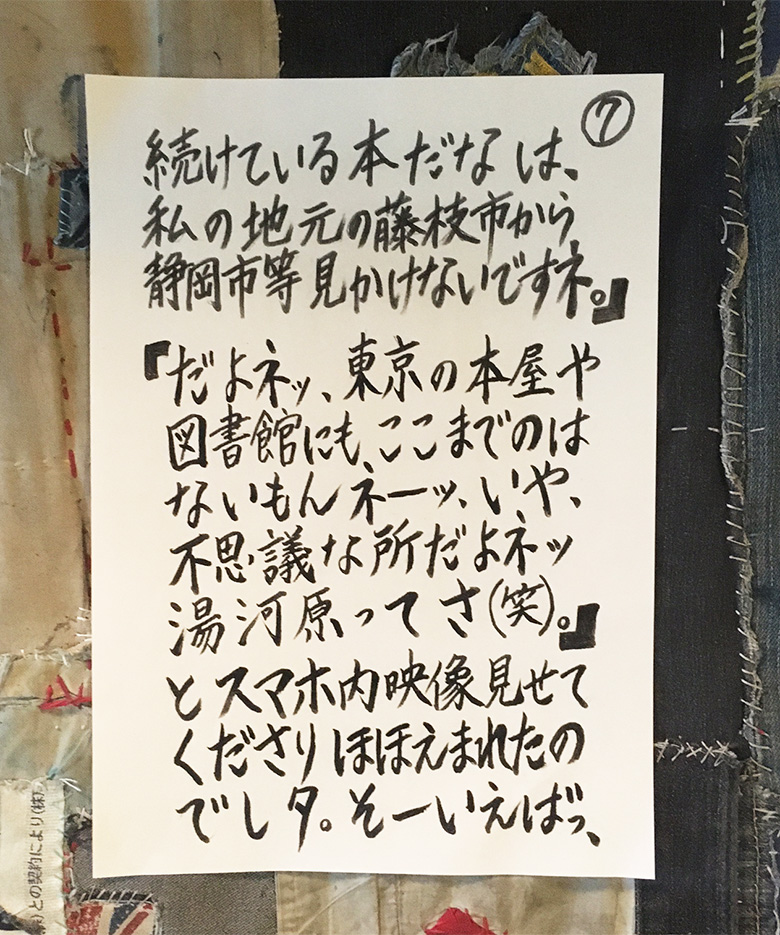 ⑦
続けている本だなは、
私の地元の藤枝市から
静岡市等見かけないですネ。』
『だよネッ、東京の本屋や
図書館にも、ここまでのは
ないもんネーッ、いや、
不思議な所だよネッ
湯河原ってさ(笑)。』
とスマホ内映像見せて
くださりほほえまれたの
でしタ。そーいえばっ、
との契約により(株)